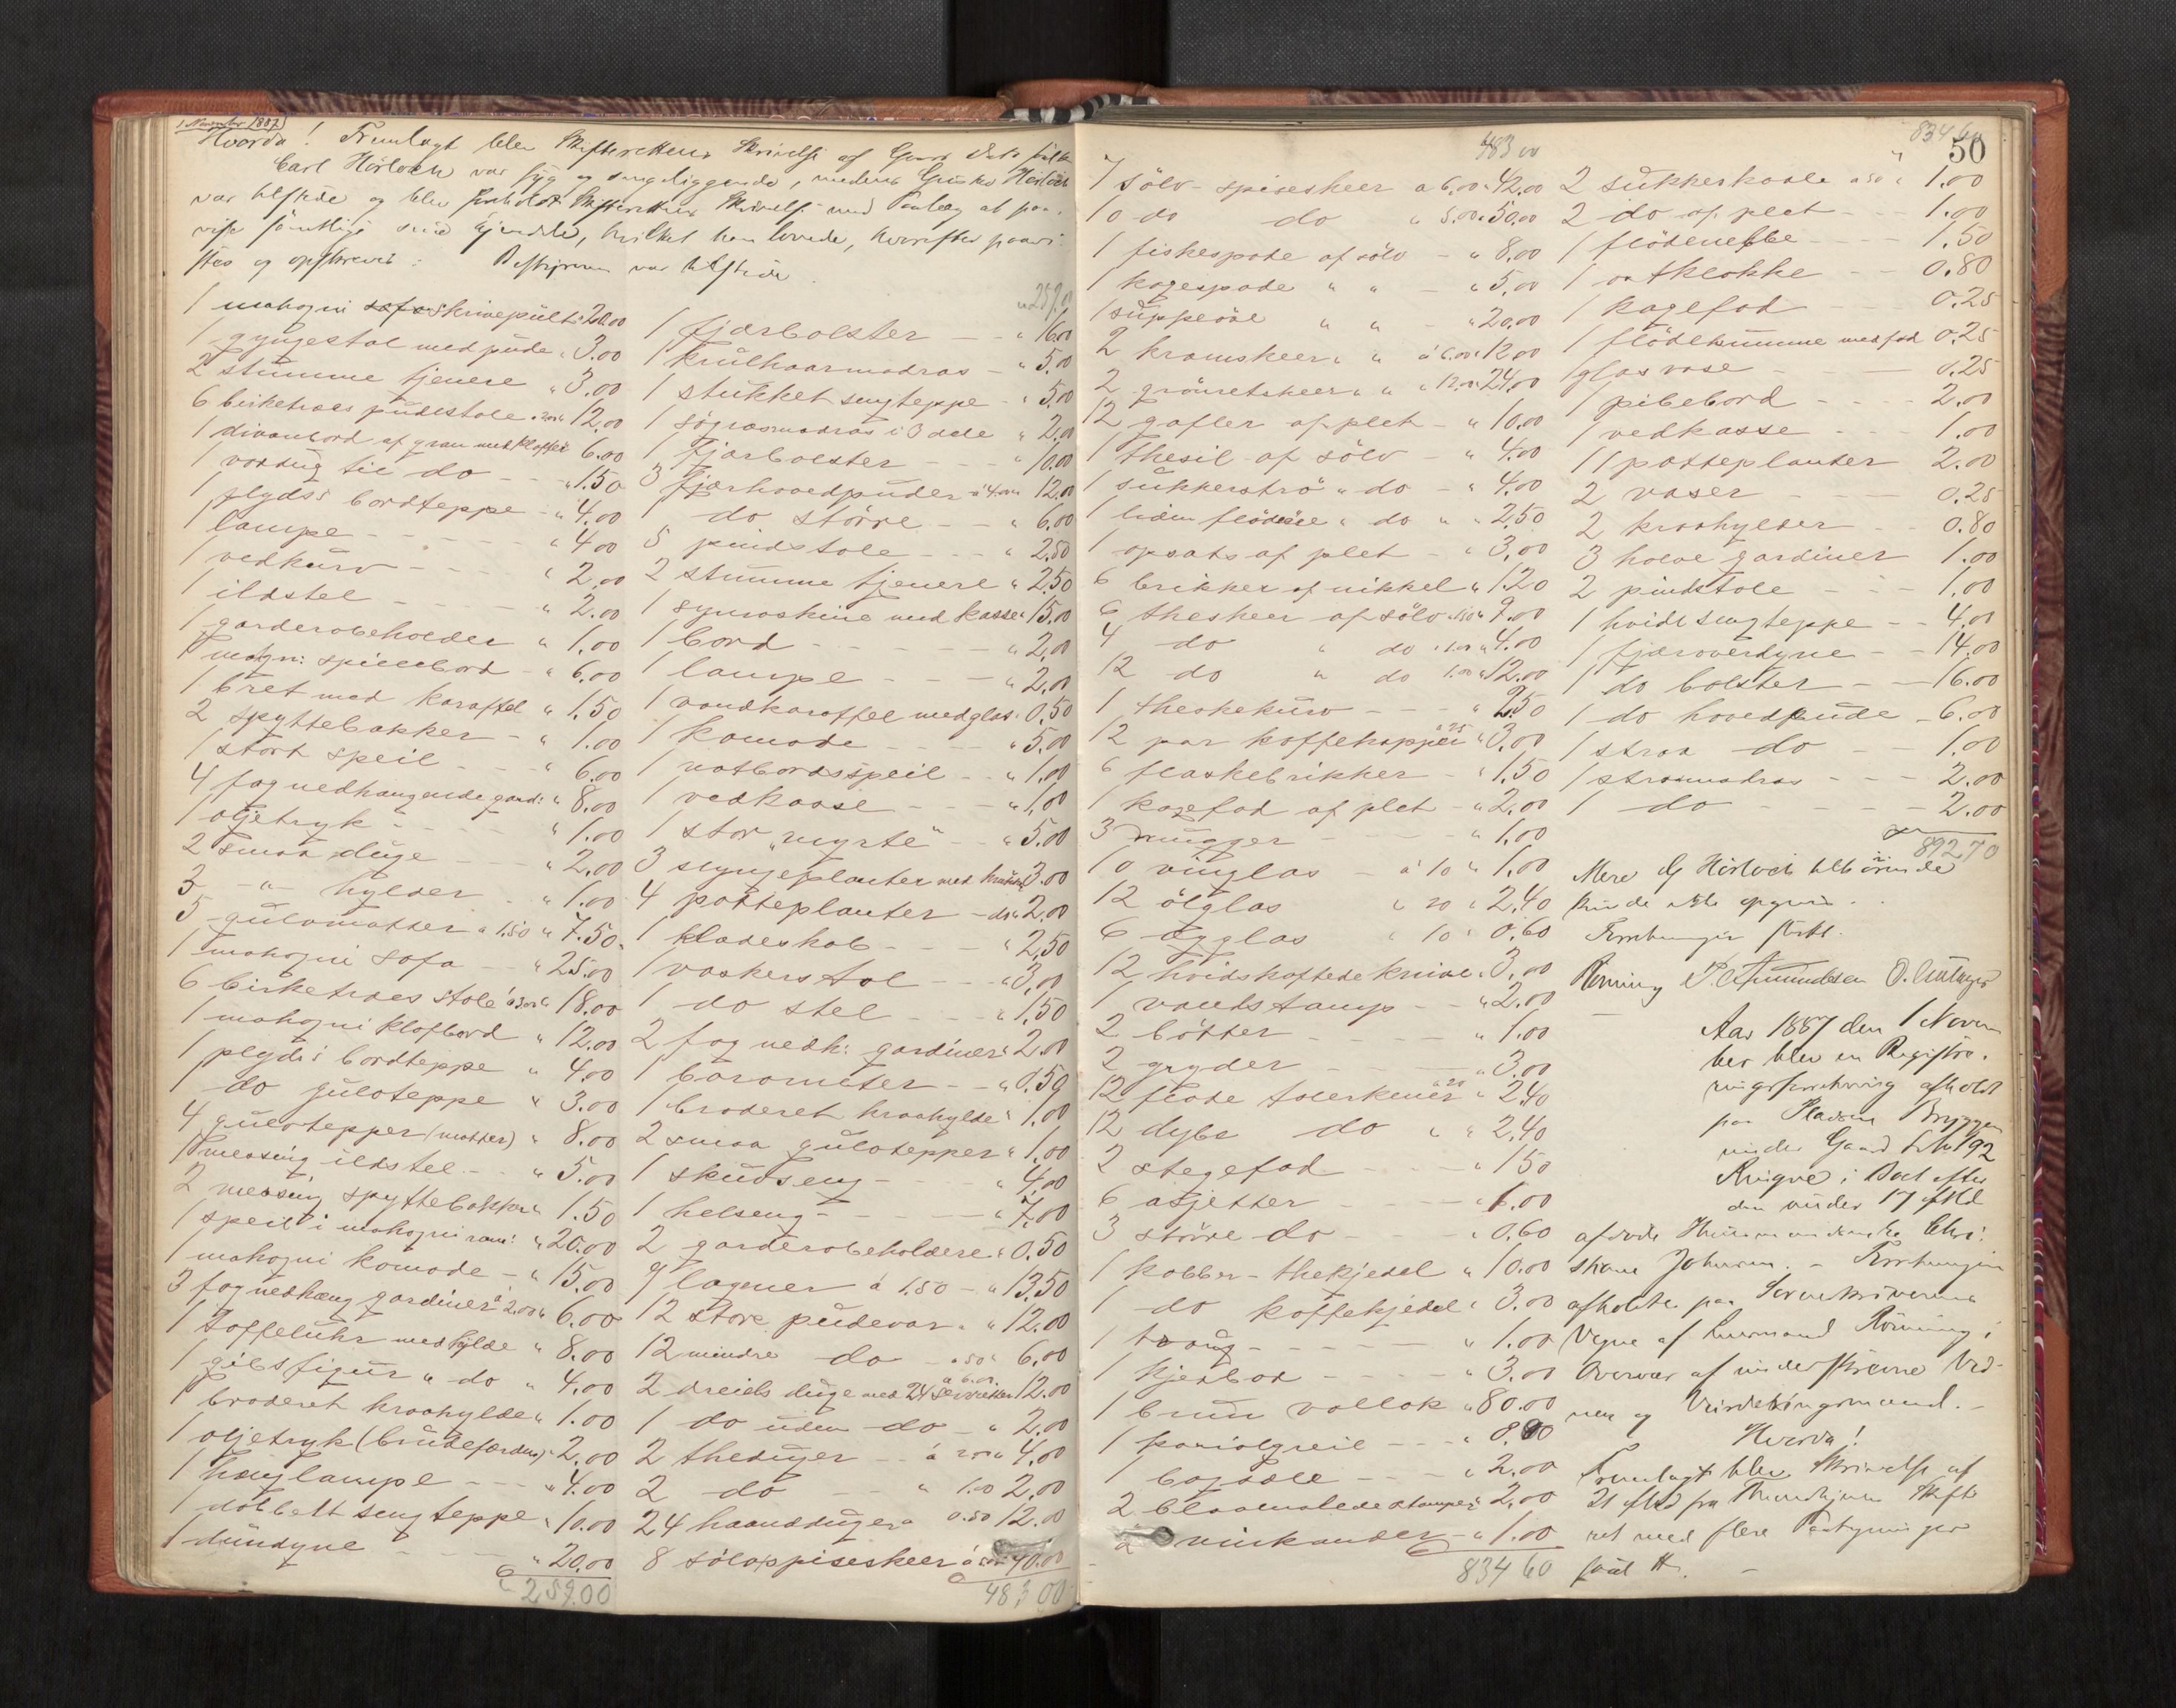 1 November 1887
Hvorda! Fremlagt blev Skifterettens Skrivelse af Gaars Dato
Carl Hörlock var syg og sengeliggende, medens Hörlock
var tilstede og blev Skifterettens Skrivelse med Paalæg at paa-
vise samtlige sine Ejendele, hvilket han lovede, hvorefter paavi-
stes og opskreves: Bestyreren var tilstede
1 mahogni sofa skrivepült " 20.00
1 gyngestol med püde " 3.00
2 stümme tjenere " 3.00
6 birketræes püdestole 2.00 " 12.00
1 divanbord af gran med klaffer 6.00
1 voxdüg til do - - " 1.50
1 plyds: bordteppe - " 4.00
1 lampe - - - " 4.00
1 vedkürv - - - " 2.00
1 ildstel - - - " 2.00
1 garderobeholder " 1.00
1 mahgn: spillebord - " 6.00
1 bret med karaffel " 1.50
2 spyttebakker - " 1.00
1 stort speil - - " 6.00
4 fag nedhangende gard: " 8.00
1 oljetryk - - - " 1.00
2 smaa düge - - " 2.00
3 -"- hylder - " 1.00
5 gülvmatter a 1.50 " 7.50
1 mahogni sofa - " 25.00
6 birketræes stole a 3.00 " 18.00
1 mahogni klafbord " 12.00
1 plyds: bordteppe " 4.00
1 do gülvteppe " 3.00
4 gülvtepper (matter) " 8.00
1 messing ildstel - - " 5.00
2 messing spyttebakker " 1.50
1 speil i mahogni ram: " 20.00
1 mahogni komode - " 15.00
3 fag nedhæng gardiner a 2.00 " 6.00
1 taffelühr med hylde " 8.00
1 gibsfigur " do " 4.00
1 broderet kraahylde " 1.00
1 oljetryk (brüdefærden) " 2.00
1 hænglampe - - " 4.00
1 dobbelt sengteppe " 10.00
1 dündyne - - " 20.00
" 259.00
" 259.00
1 fjærbolster - - " 16.00
1 krülhaarmadras - " 5.00
1 stükket sengteppe - " 5.00
1 søgræsmadras i 3 dele " 2.00
1 Fjærbolster - - - " 10.00
3 fjærhovedpüder á 4.00 " 12.00
1 do. større - - " 6.00
5 pindstole - - - " 2.50
2 stümme tjenere " 2.50
1 symaskine med kasse " 15.00
1 bord - - - - " 2.00
1 lampe - - - " 2.00
1 vandkaraffel med glas " 0.50
1 komode - - - " 5.00
1 natbordsspeil - - " 1.00
1 vedkasse - - - " 1.00
1 stor "myrte" - - " 5.00
3 slyngeplanter med krükker 3.00
4 potteplanter - do " 2.00
1 kladeskab - - - " 2.50
1 vaskerstol - - - " 3.00
1 do stel - - - " 1.50
2 fag nedh: gardiner " 2.00
1 barometer - - " 0.50
1 broderet kraahylde " 1.00
2 smaa gülvtepper " 1.00
1 sküdseng - - - " 4.00
1 helseng - - - " 7.00
2 garderobeholdere " 0.50
9 lagener á 1.50 - " 13.50
12 store püdevar - " 12.00
12 mindre do - á 50 " 6.00
2 dreiels düge med 24 servietter á 6.00 12.00
1 do üden do - " 2.00
2 thedüger - - á 2.00 " 4.00
2 do - - " 1.00 2.00
24 haanddüger a 0.50 12.00
8 sölvspiseskeer á 5.00 40.00
483 00
50
483 00
7 sölv-spiseskeer a 6.00 " 42.00
10 do do " 5.00 " 50.00
1 fiskespade af sölv - " 8.00
1 kagespade " " - " 5.00
1 süppeöse " " - " 20.00
2 kramskeer " " á 6.00 " 12.00
2 grönretskeer " " " 12.00 " 24.00
12 gafler af plet - " 10.00
1 thesil af sölv - " 4.00
1 sükkerströ " do - " 4.00
1 liden flödeöse " do " " 2.50
1 opsats af plet - " 3.00
6 brikker af nikkel " 1.20
6 theskeer af sölv 1.50 " 9.00
4 do " do 1.00 " 4.00
12 do " do 1.00 " 12.00
1 thekekürv - - - " 2.50
12 par kaffekopper á 25 " 3.00
6 flaskebrikker - " 1.50
1 kagefad af plet - " 2.00
3 mügger - - - " 1.00
10 vinglas - á 10 " 1.00
12 ölglas " 20 " 2.40
6 ägglas " 10 " 0.60
12 hvidskaftede knive " 3.00
1 vandstamp - - " 2.00
2 bötter - - - - " 1.00
2 gryder - - - " 3.00
12 flade tallerkener a 20 " 2.40
12 dybe do " " 2.40
2 stegefad - - - " 1.50
6 asjetter - - - " 1.00
3 större do - - - " 0.60
1 kobber-thekjedel " 10.00
1 do kaffekjedel " 3.00
1 traug - - - - " 1.00
1 kjedbad - - - " 3.00
1 brun vallak " 80.00
1 kariolgreie - - " 8.00
1 bogsæle - - - " 2.00
2 blaamalede stamper " 2.00
2 vinkander - " 1.00
834 60
834 60
2 sukkerskaale a 50 " 1.00
2 do af plet - - - 1.00
1 flödenebbe - - - 1.50
1 ostklokke - - 0.80
1 kagefad - - - 0.25
1 flödekümme med fad 0.25
1 glasvase - - - 0.25
1 pibebord - - - 2.00
1 vedkasse - - - 1.00
11 potteplanter 2.00
2 vaser - - - 0.25
2 kraahylder - - 0.80
3 halve gardiner 1.00
2 pindstole - - - 1.00
1 hvidt sengteppe - - 4.00
1 fjæroverdyne - - 14.00
1 do bolster - - 16.00
1 do hovedpude - 6.00
1 straa do - - 1.00
1 straamadras - - - 2.00
1 do - - - - 2.00
892 70
Mere Hörloch tilhörende
kunde ikke opgives.
Forretningen sluttet.
Rönning P. Amundsen O.
Aar 1887 den 1 Novem
ber blev en Registre-
ringsforretning afholdt
paa Pladsen Bryggen
under Gaard L. No 192
Ringve i Boet efter
den under 17 f. Md
afdöde Christiane Johnsen. - Forretningen
afholdtes paa Sorenskriverens
Vegne af Lensmand Rönning i
Overvær af underskrevne Vid-
ner og Vurderingsmænd. -
Hvorda!
Fremlagt blev Skrivelse af
21 f. Md fra Trondhjems Skifte
ret med flere Paategninger